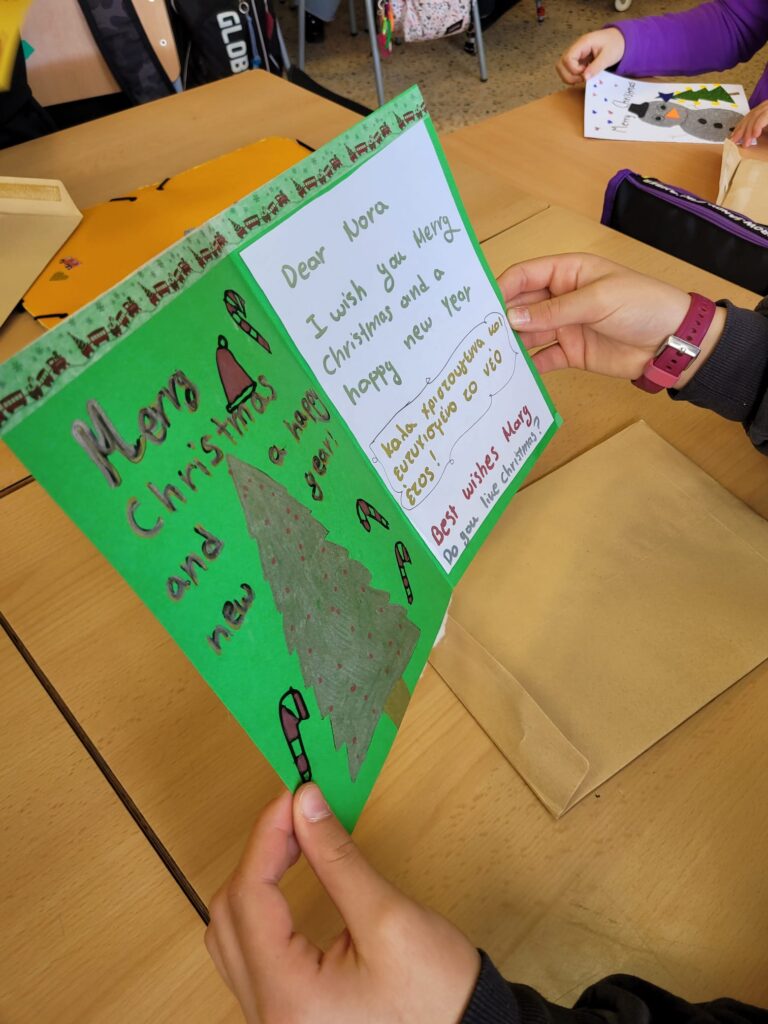 Merry
Christmas
and a happy
new year!
Dear Nora
I wish you Merry
Christmas and a
happy new Year
Καλα χριστουγεννα και
ευτυχισμένο το νέο
έτος!
Best wishes Marg
Do you like Christmas?
GLOB
Merry Christmas